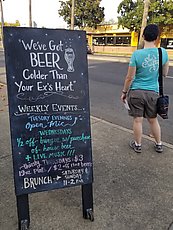 We've Got
BEER
Colder Than
Your Ex's Heart
WEEKLY EVENTS...
TUESDAY EVENINGS
Open Mic
WEDNESDAYS
1/2 off-burgers w/purchase
of house beer
+ LIVE MUSIC
Thirsty THURSDAYS $3
BRUNCH - SATURDAY &
SUNDAY
11-2 P.M.